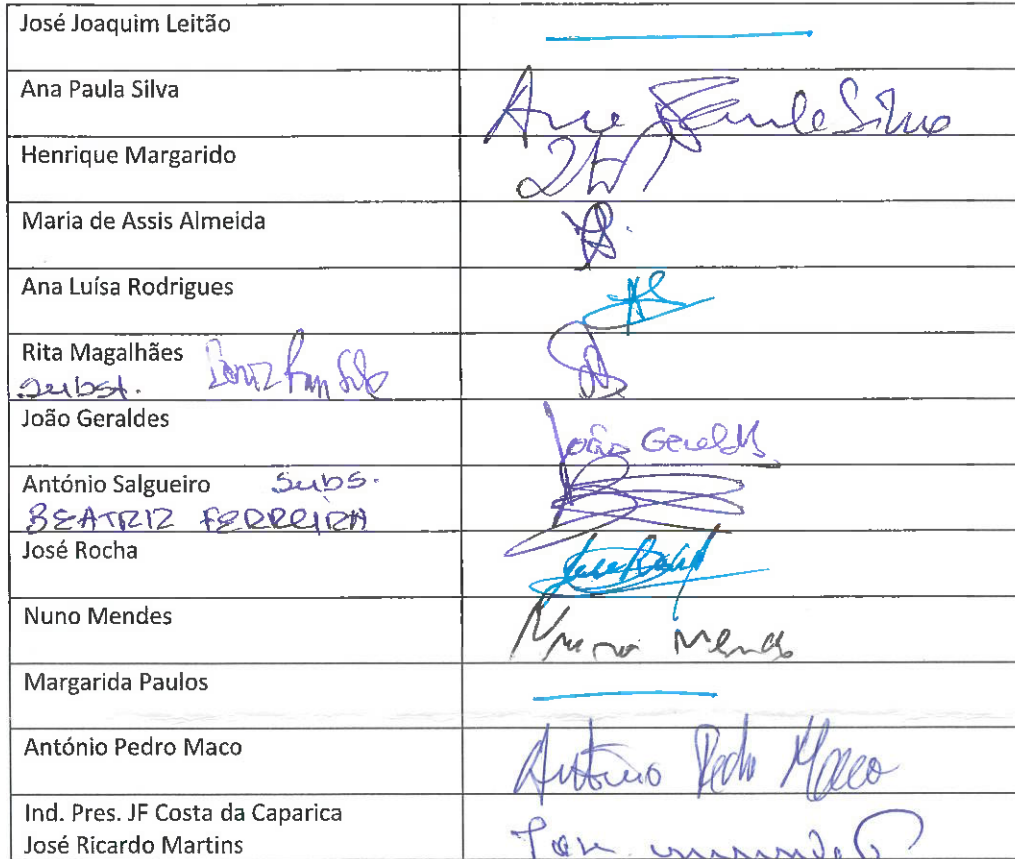 José Joaquim Leitão
Ana Paula Silva Ana Paula Silva
Henrique Margarido
Maria de Assis Almeida
Ana Luísa Rodrigues
Rita Magalhães
subst.
João Geraldes João Geraldes
António Salgueiro Subs.
BEATRIZ FERREIRA
José Rocha
Nuno Mendes Nuno Mendes
Margarida Paulos
António Pedro Maco António Pedro Maco
Ind. Pres. JF Costa da Caparica
José Ricardo Martins